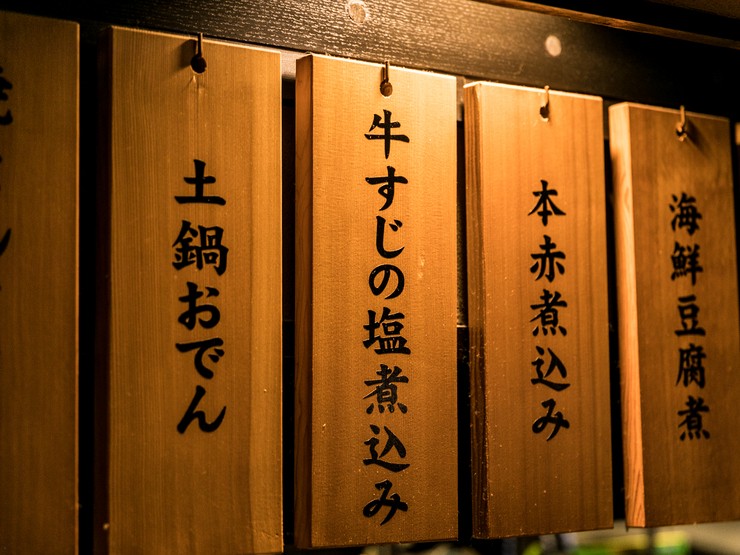 土鍋おでん
牛すじの塩煮込み
本赤煮込み
海鮮豆腐煮